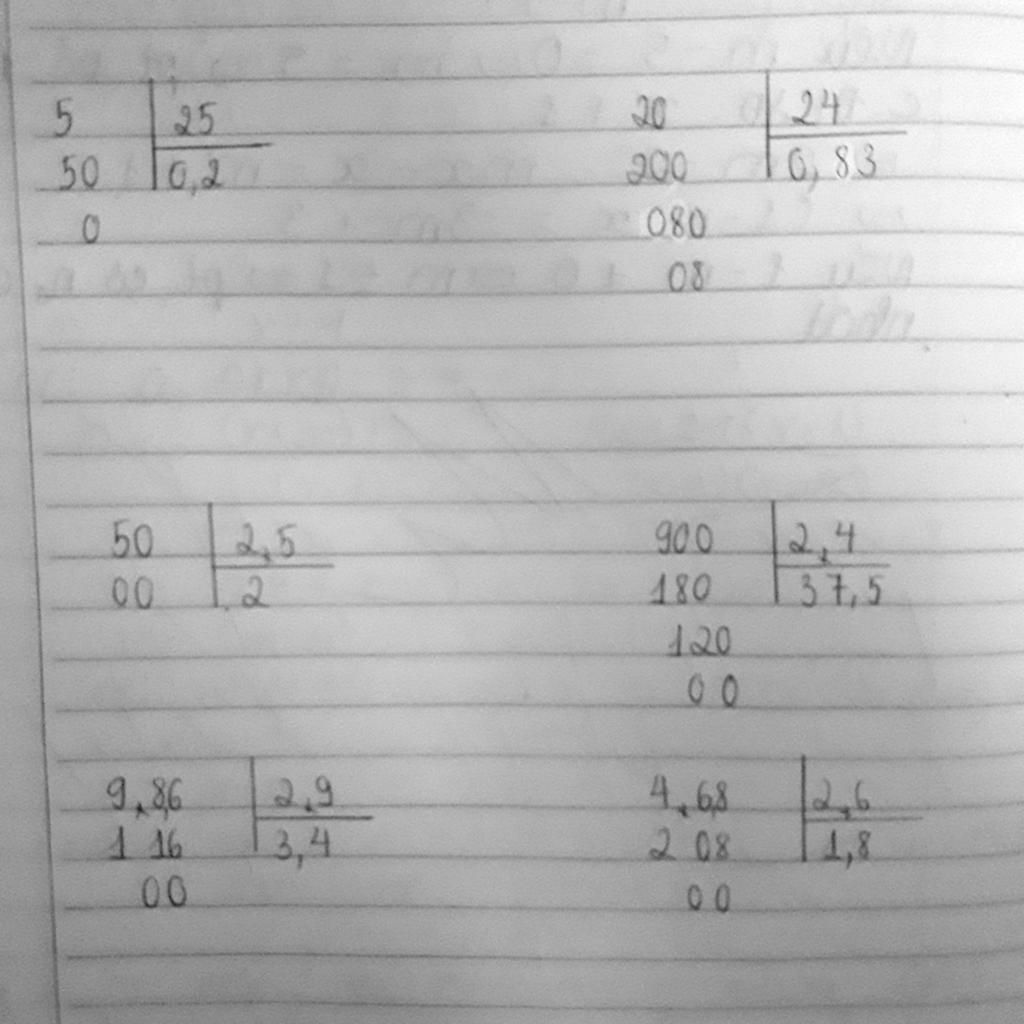 5 25
50 0,2
0
20 24
200 0,83
080
08
50 2,5
00 2
900 2,4
180 37,5
120
00
9,8,6 2,9
1 16 3,4
00
4,68 2,6
2 08 1,8
00